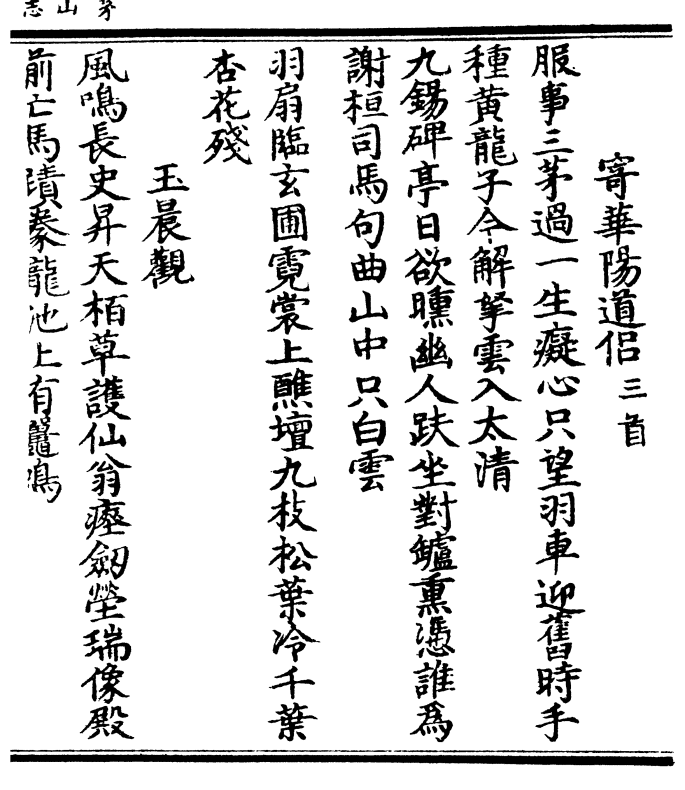 茅山志
寄華陽道侣三首
服事三茅過一生癡心只望羽車迎舊時手
種黄龍子今解拏雲入太清
九錫碑亭日欲曛幽人趺坐對鑪熏憑誰爲
謝桓司馬句曲山中只白雲
羽扇臨玄圃霓裳上醮壇九枝松葉冷千葉
杏花殘
玉晨觀
風鳴長史昇天栢草護仙翁瘞劔塋瑞像殿
前亡馬蹟豢龍池上有鼉鳴